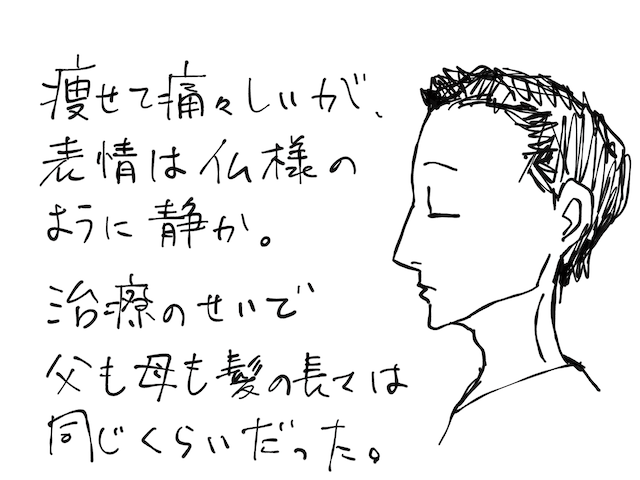 痩せて痛々しいが、
表情は仏様の
ように静か。
治療のせいで
父も母も髪の長さは
同じくらいだった。